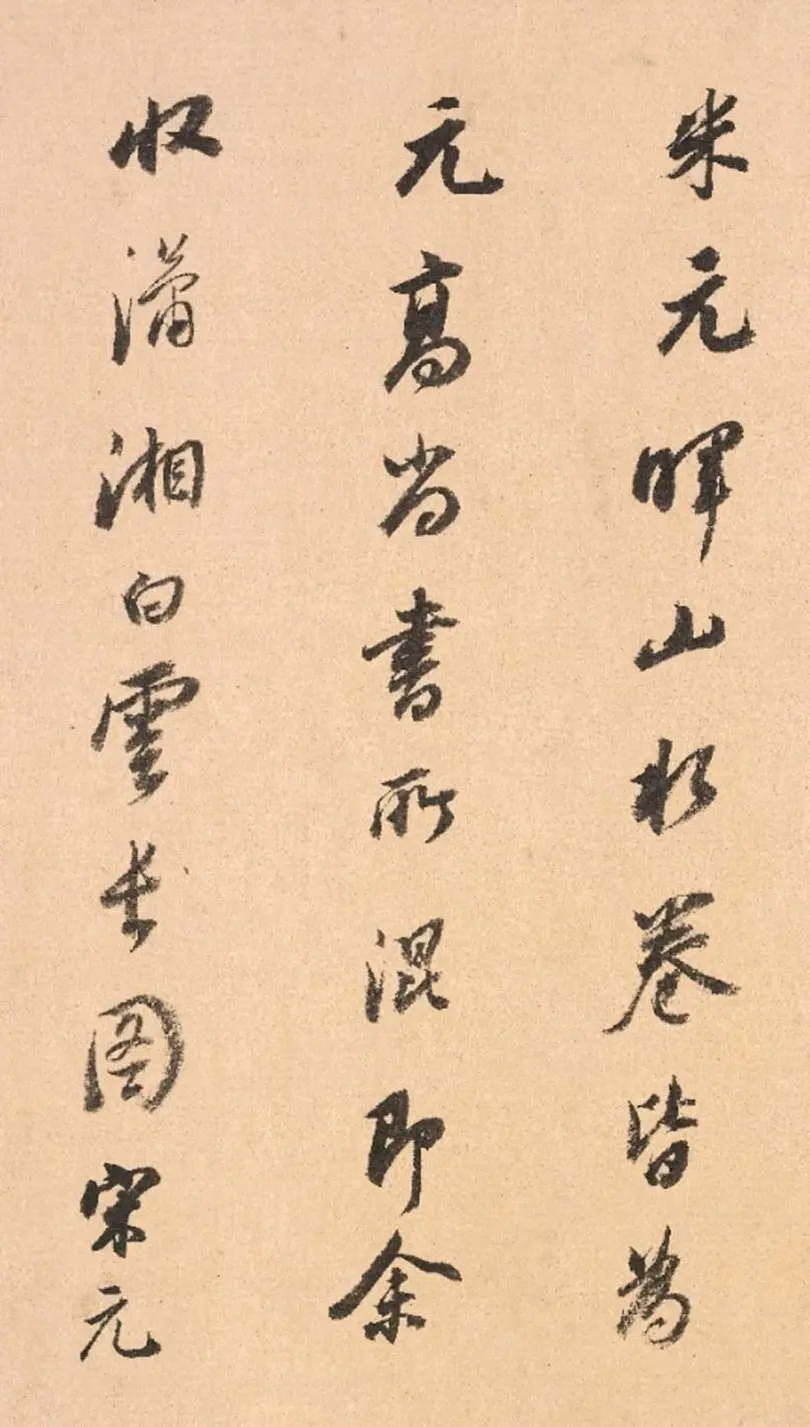 米元暉山水卷皆為
元高尚書所混即余
收瀟湘白雲長圖宋元